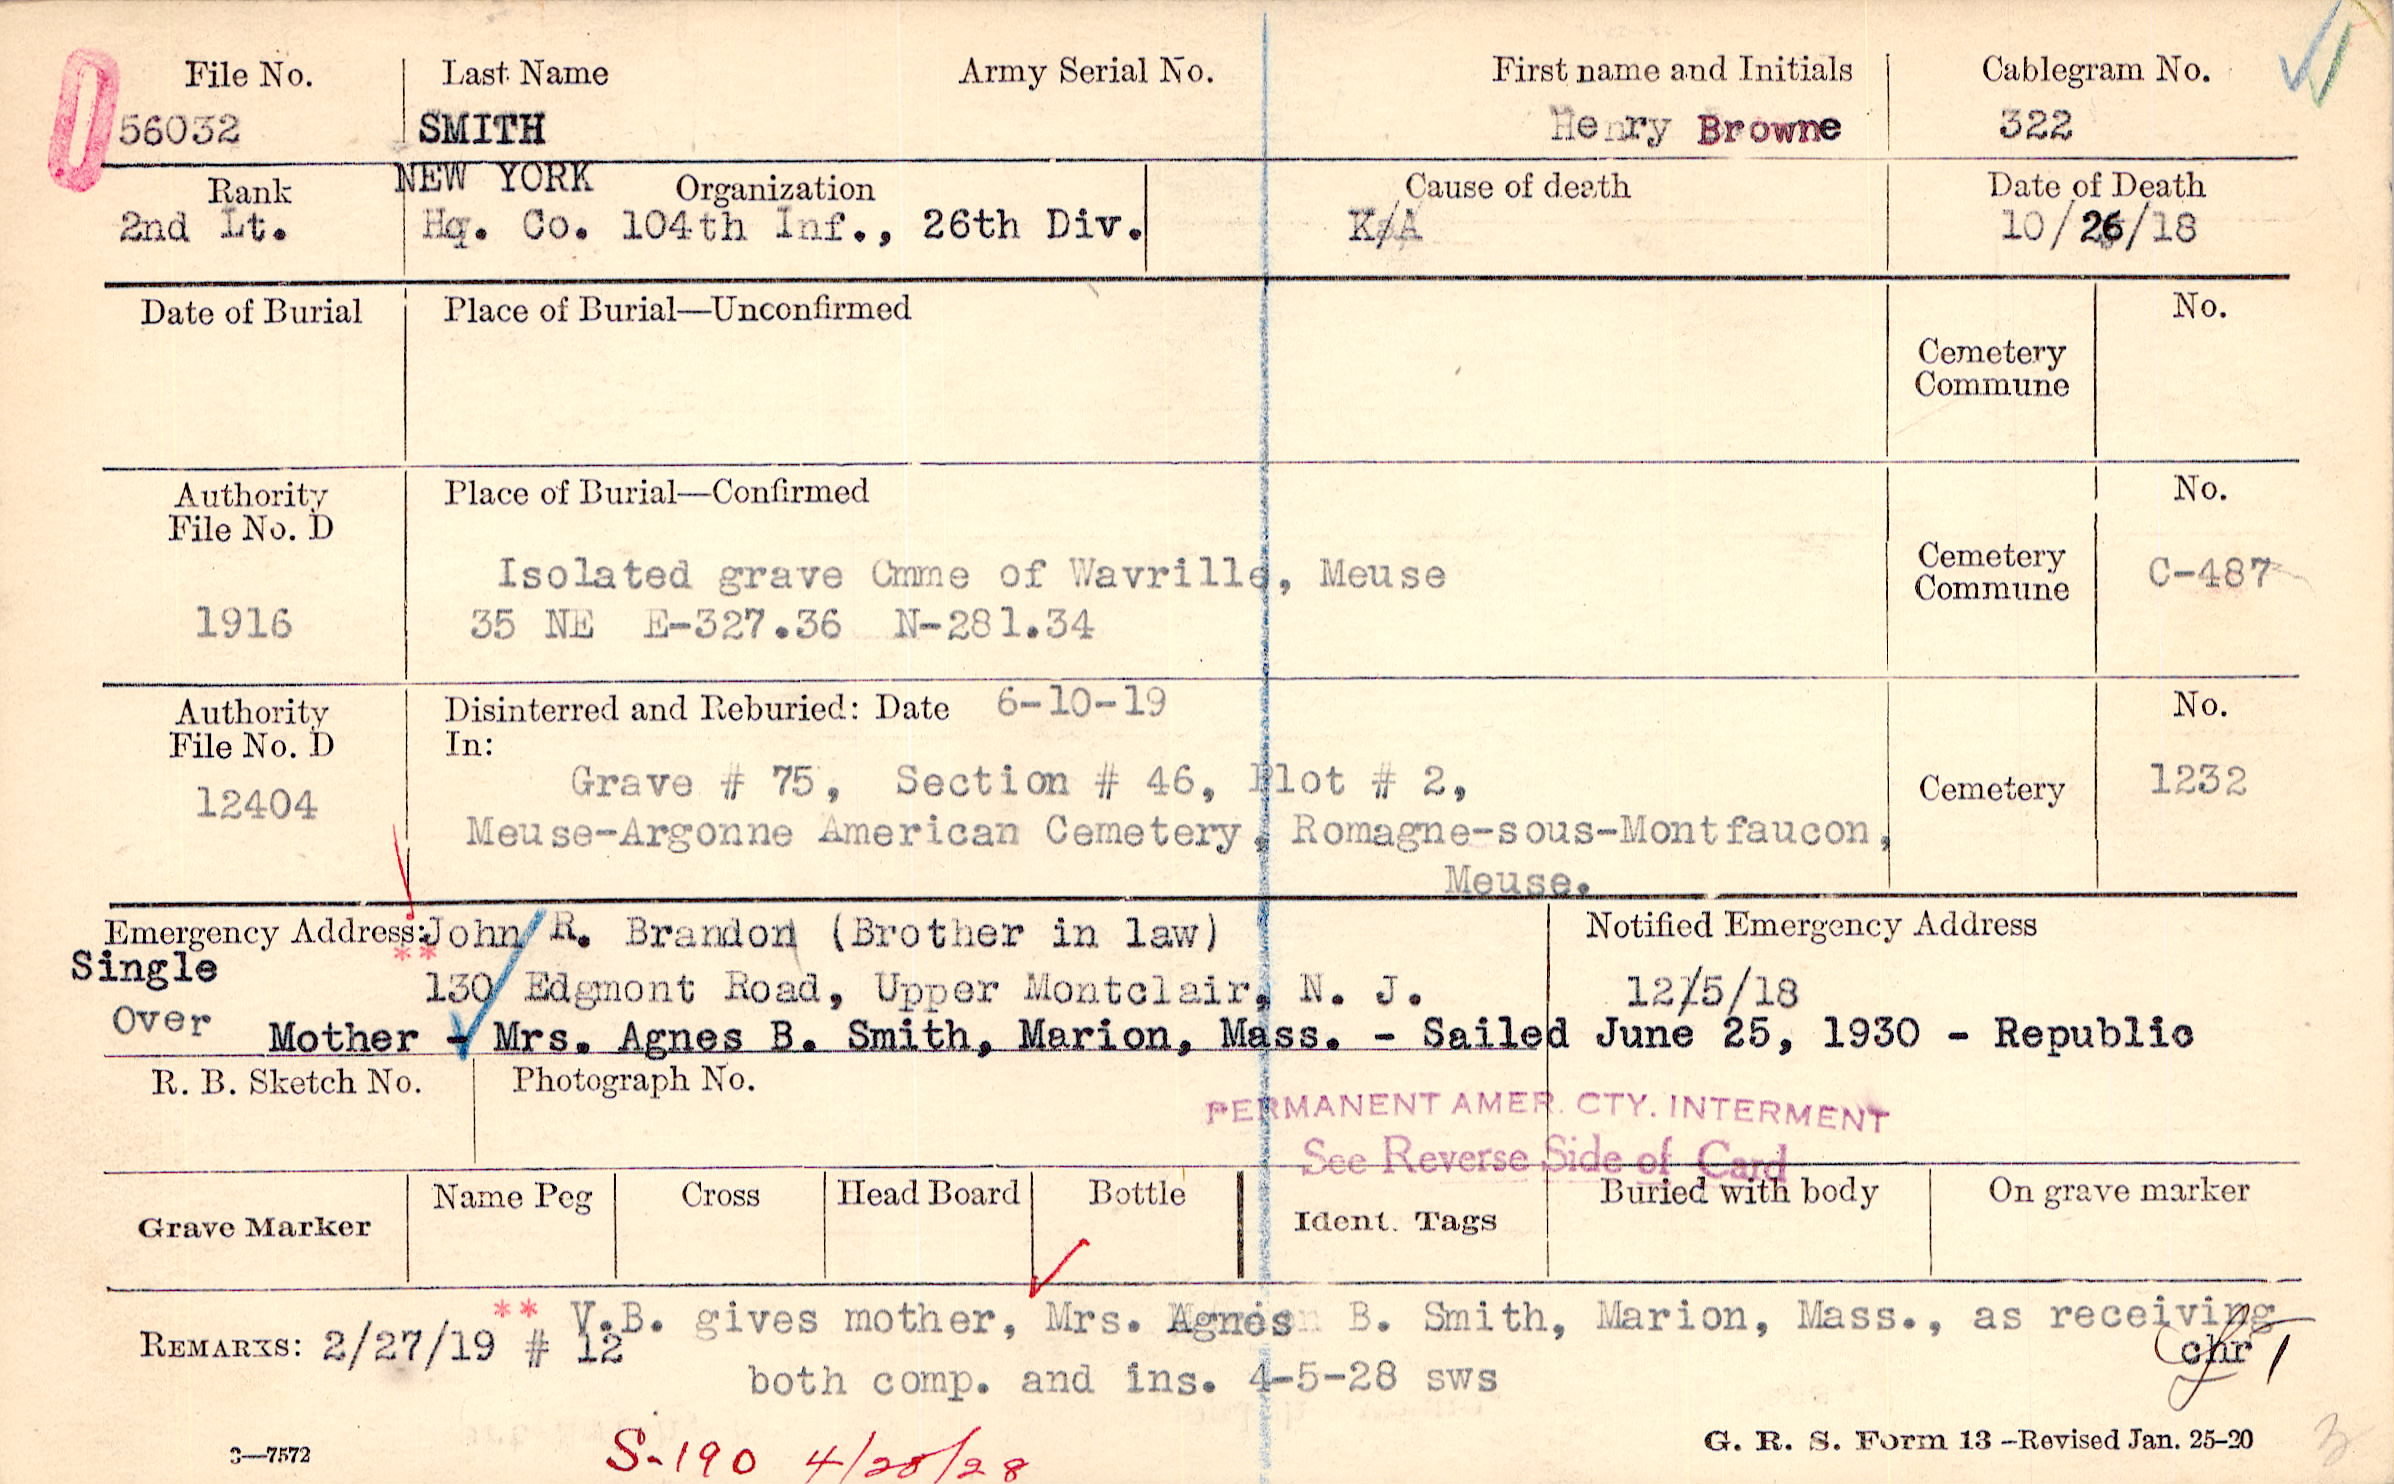 File No. Last Name Army Serial No. First name and Initials Cablegram No.
56032 SMITH Henry Browne 322
NEW YORK
Rank Organization Cause of death Date of Death
2nd Lt. Hq. Co. 104th Inf., 26th Div. K/A 10/26/18
Date of Burial Place of Burial—Unconfirmed No.
Cemetery
Commune
Authority Place of Burial—Confirmed No.
File No. D
Isolated grave Cmme of Wavrille, Meuse Cemetery
Commune C-487
1916 35 NE E-327.36 N-281.34
Authority Disinterred and Reburied: Date 6-10-19 No.
File No. D In:
12404 Grave # 75, Section # 46, Plot # 2, Cemetery 1232
Meuse-Argonne American Cemetery, Romagne-sous-Montfaucon,
Meuse.
Emergency Address: John R. Brandon (Brother in law) Notified Emergency Address
Single **
130 Edgmont Road, Upper Montclair, N. J. 12/5/18
Over
Mother - Mrs. Agnes B. Smith, Marion, Mass. - Sailed June 25, 1930 - Republic
R. B. Sketch No. Photograph No.
PERMANENT AMER. CTY. INTERMENT
See Reverse Side of Card
Grave Marker Name Peg Cross Head Board Bottle Ident. Tags Buried with body On grave marker
** V.B. gives mother, Mrs. Agnes B. Smith, Marion, Mass., as receiving
REMARKS: 2/27/19 # 12 chr
both comp. and ins. 4-5-28 sws
S-190 4/28/28
3—7572 G. R. S. Form 13—Revised Jan. 25-20
3